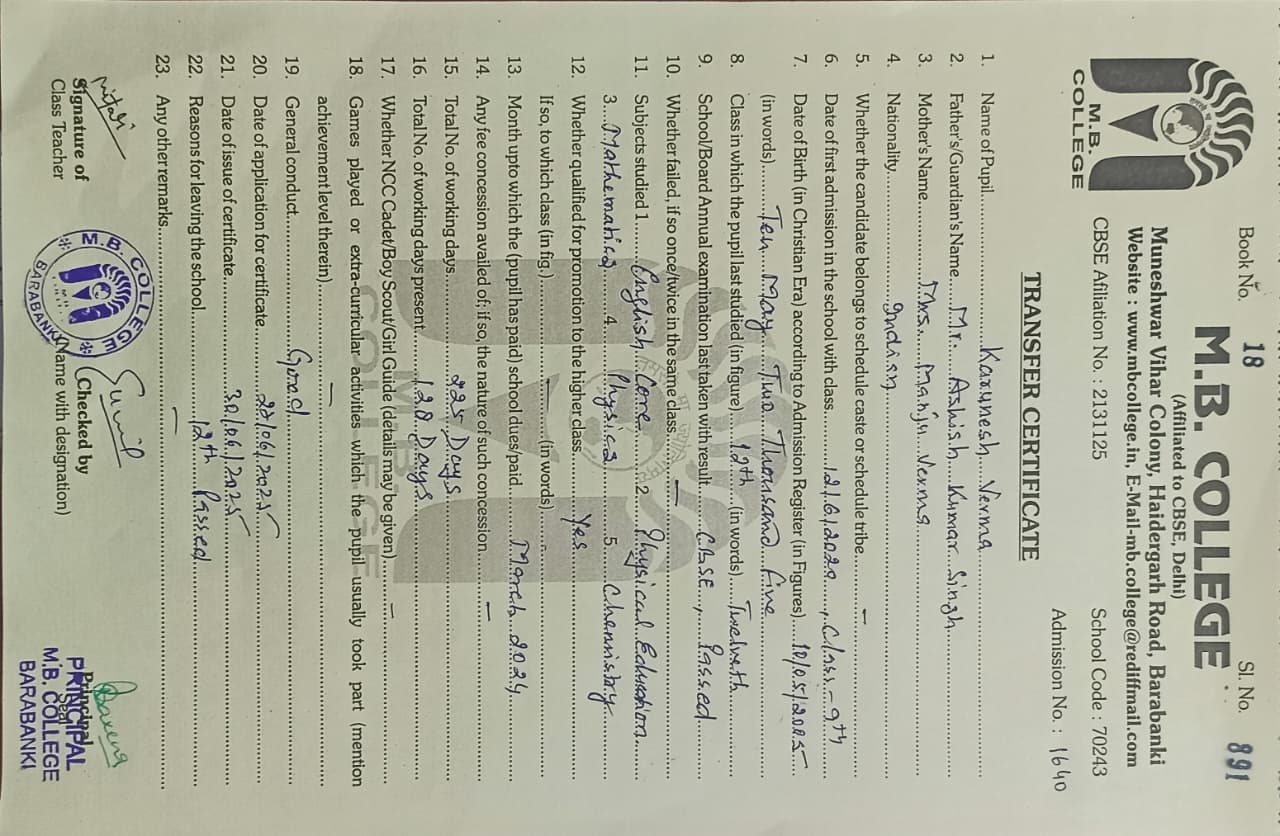 Book No. 18 Sl. No. 891
M.B. COLLEGE
(Affiliated to CBSE, Delhi)
Muneshwar Vihar Colony, Haidergarh Road, Barabanki
Website : www.mbcollege.in, E-Mail-mb.college@rediffmail.com
M.B.
COLLEGE
CBSE Afiliation No. : 2131125 School Code : 70243
TRANSFER CERTIFICATE
Admission No. : 1640
1. Name of Pupil Karunesh Verma
2. Father's/Guardian's Name Mr. Ashish Kumar Singh
3. Mother's Name Mrs. Manju Verma
4. Nationality Indian
5. Whether the candidate belongs to schedule caste or schedule tribe —
6. Date of first admission in the school with class 2/6/2020, Class - 9th
7. Date of Birth (in Christian Era) according to Admission Register (in Figures) 10/05/2005
(in words) Ten May Two Thousand Five
8. Class in which the pupil last studied (in figure) 12th (in words) Twelveth
9. School/Board Annual examination last taken with result CBSE, Passed
10. Whether failed, if so once/twice in the same class —
11. Subjects studied 1 English Core 2. Physical Education
3. Mathematics 4. Physics 5 Chemistry
12. Whether qualified for promotion to the higher class Yes
If so, to which class (in fig.) — (in words)
13. Month upto which the (pupil has paid) school dues/paid March 2024
14. Any fee concession availed of: if so, the nature of such concession —
15. Total No. of working days 225 Days
16. Total No. of working days present 120 Days
17. Whether NCC Cadet/Boy Scout/Girl Guide (details may be given) —
18. Games played or extra-curricular activities which the pupil usually took part (mention
achievement level therein) —
19. General conduct Good
20. Date of application for certificate 27/06/2025
21. Date of issue of certificate 30/06/2025
22. Reasons for leaving the school 12th Passed
23. Any other remarks —
Signature of
Class Teacher
M.B. COLLEGE
BARABANKI
Sunil
(Checked by
(Name with designation)
Principal
Seal
PRINCIPAL
M.B. COLLEGE
BARABANKI